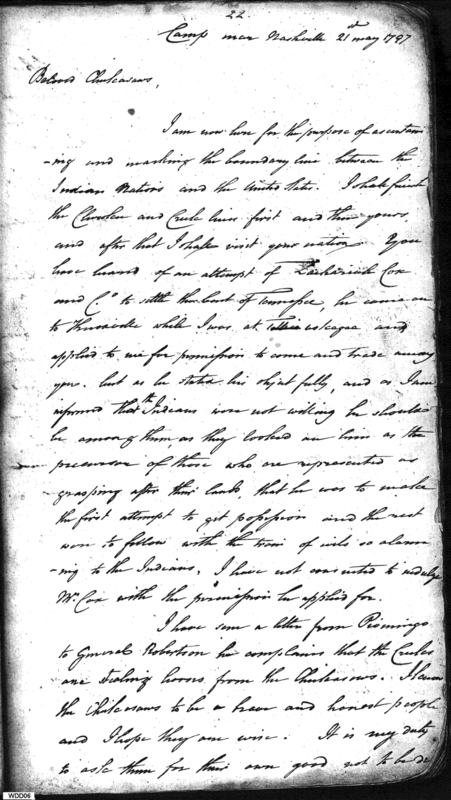 22
Camp near Nashville 21st may 1797
Beloved Chickasaws,
I am now here for the purpose of ascertain
-ing and marking the boundary line between the
Indian Nations and the United States. I shall finish
the Cherokee and Creek lines first and then yours,
and after that I shall visit your nation. You
have heard of an attempt of Zachariah Cox
and Co. to settle the bent of Tennessee, he came on
to Knoxville while I was at Tellico and
applied to me for permission to come and trade among
you. but as he stated his object fully, and as I am
informed that the Indians were not willing he should
be among them as they looked on him as the
precursor of those who are represented as
grasping after their lands, that he was to make
the first attempt to get possession and the rest
were to follow with the train of evils so alarm
-ing to the Indians, I have not consented to indulge
Mr. Cox with the permission he applied for.
I have seen a letter from Piomingo
to General Robertson he complains that the Creeks
are stealing horses from the Chickasaws. I know
the Chickasaws to be a brave and honest people
and I hope they are wise. It is my duty
to ask them for their own good not to be de
WDD06